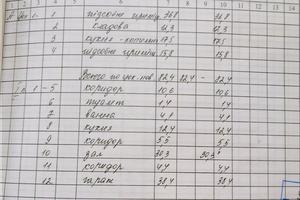 1 2 3 4 5 6 7 8 9 10 11
1 - 1 підсобне приміщ. 36,8 36,8
2 кладова 12,3 12,3
3 кухня - котельня 17,5 17,5
4 підсобне приміщ. 15,8 15,8
Всього по 82,4 82,4 - 82,4
1 - 5 коридор 10,6 10,6
6 туалет 1,4 1,4
7 ванна 4,1 4,1
8 кухня 12,4 12,4
9 коридор 5,5 5,5
10 зал 30,3 30,3
11 коридор 4,4 4,4
12 гараж 38,4 38,4